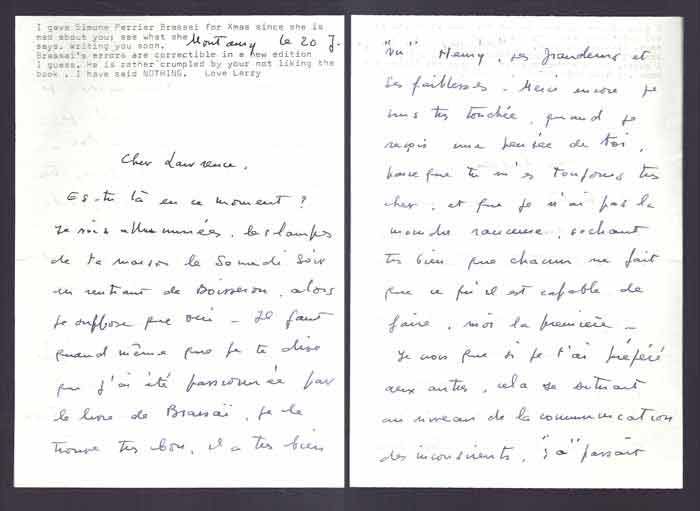 I gave Simone Perrier Brassai for Xmas since she is
mad about you; see what she
says. Writing you soon.
Montaury le 20 J.
Brassai's errors are correctible in a new edition
I guess. He is rather crumpled by your not liking the
book. I have said NOTHING.   Love Larry
Cher Lawrence,
Es-tu là en ce moment ?
Je vois allumées, les lampes
de ta maison le Samedi Soir
en rentant de Boisseron, alors
je suppose que oui – Il faut
quand même que je te dise
que j'ai été passionnée par
le livre de Brassaï, je le
trouve très bon, il a très bien
"vu" Henry, ses grandeurs et
ses faiblesses. Merci encore je
suis très touchée, quand je
reçois une pensée de toi,
parce que tu m'es toujours très
cher, et que je n'ai pas la
moindre rancune, sachant
très bien que chacun ne fait
que ce qu'il est capable de
faire, moi la première –
Je crois que si je t'ai préféré
aux autres, cela se situait
au niveau de la communication
des inconscients, "ça" passait